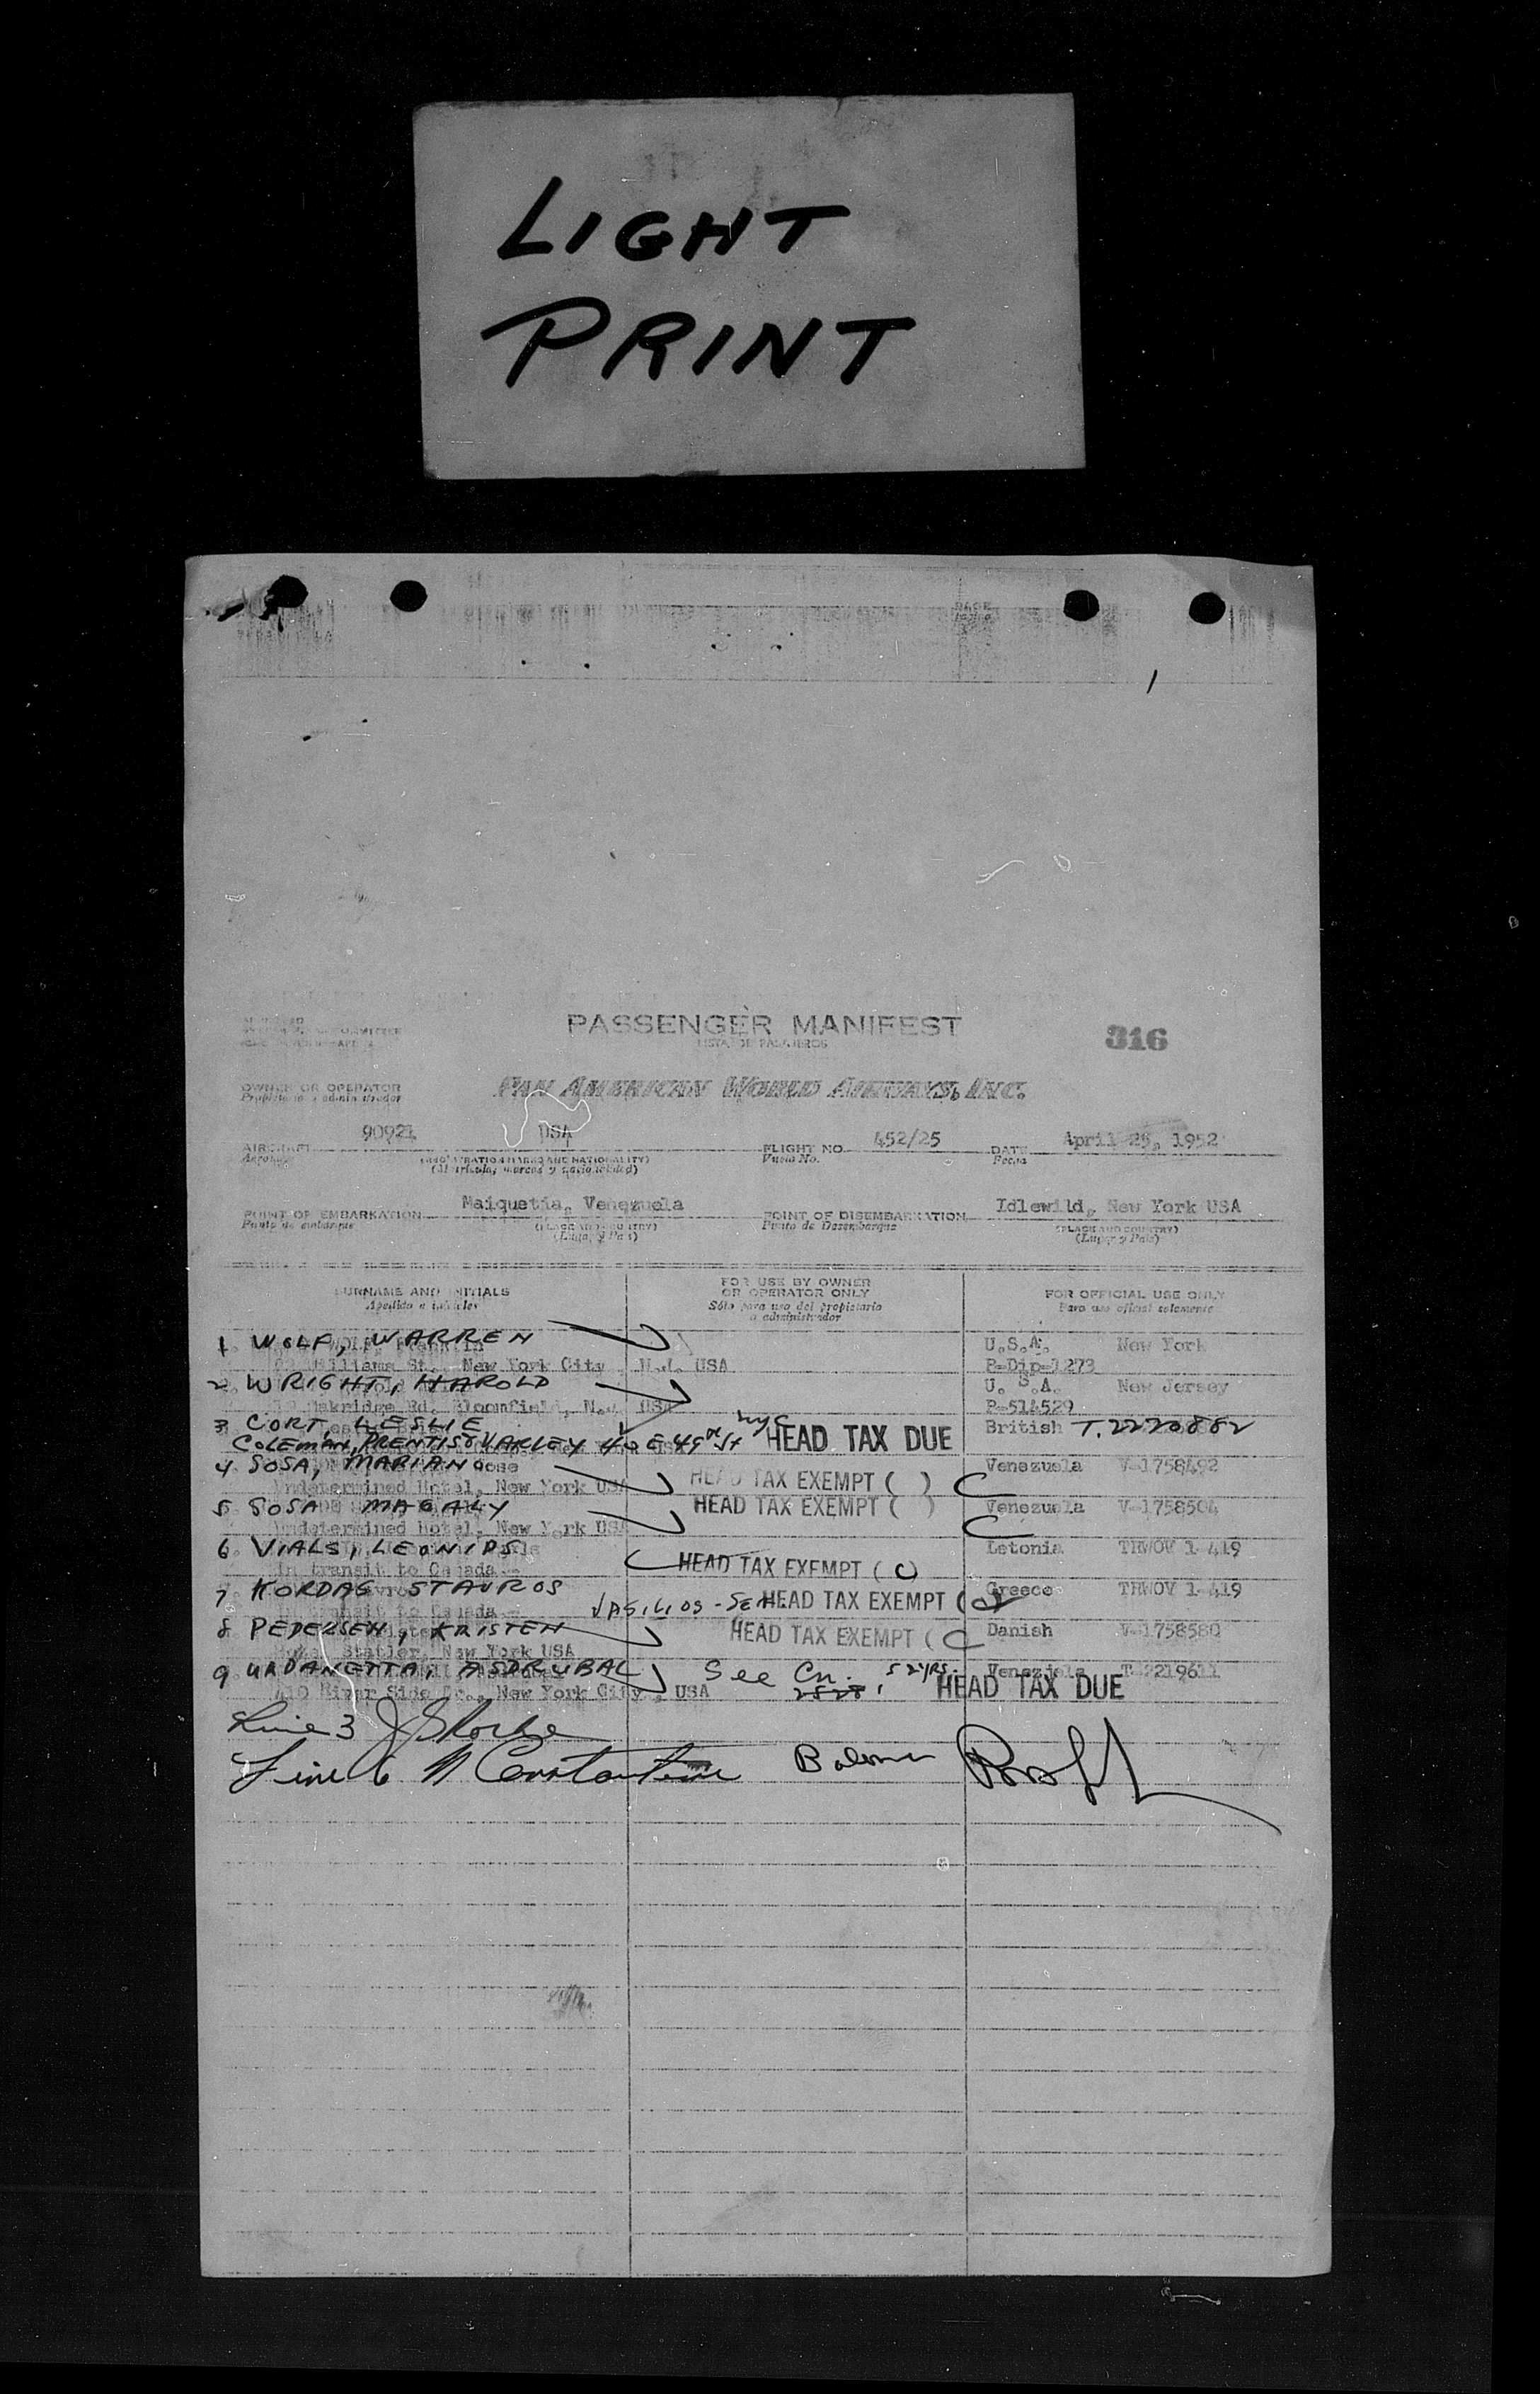 LIGHT
PRINT
PASSENGER MANIFEST
LISTA DE PASAJEROS
316
OWNER OR OPERATOR
Propietario o administrador
PAN AMERICAN WORLD AIRWAYS, INC.
AIRCRAFT 90921 USA FLIGHT NO. 452/25 DATE April 25, 1952
Aeronave (REGISTRATION MARKS AND NATIONALITY) Vuelo No. Fecha
(Matrícula, marcas y nacionalidad)
POINT OF EMBARKATION Maiquetia, Venezuela POINT OF DISEMBARKATION Idlewild, New York USA
Punto de embarque (PLACE AND COUNTRY) Punto de Desembarque (PLACE AND COUNTRY)
(Lugar y País) (Lugar y País)
SURNAME AND INITIALS FOR USE BY OWNER OR OPERATOR ONLY FOR OFFICIAL USE ONLY
Apellido e iniciales Sólo para uso del propietario o administrador Para uso oficial solamente
1 WOLF, WARREN U.S.A. New York
Williams St., New York City N.Y. USA P-Dip-1273
2 WRIGHT, HAROLD U.S.A. New Jersey
Oakridge Rd. Bloomfield, N.J. USA P-514529
3 CORT, LESLIE British T.2220882
COLEMAN, PRENTIS & VARLEY 40 E 49 St NYC HEAD TAX DUE
4 SOSA, MARIANO Venezuela V-1758492
Undetermined Hotel, New York USA HEAD TAX EXEMPT ( )
5 SOSA MAGALY HEAD TAX EXEMPT ( ) Venezuela V-1758504
Undetermined Hotel, New York USA
6 VIALS, LEONIDS Letonia TRWOV 1-419
in transit to Canada HEAD TAX EXEMPT (C)
7 KORDAS STAVROS VASILIOS HEAD TAX EXEMPT ( ) Greece TRWOV 1-419
in transit to Canada
8 PEDERSEN, KRISTEN HEAD TAX EXEMPT ( Danish V-1758580
Hotel Statler, New York USA
9 URDANETTA, ASDRUBAL See Cn. 52 YRS. Venezuela T-2219611
410 River Side Dr., New York City, USA HEAD TAX DUE
Line 3
Line 6 N Constantine